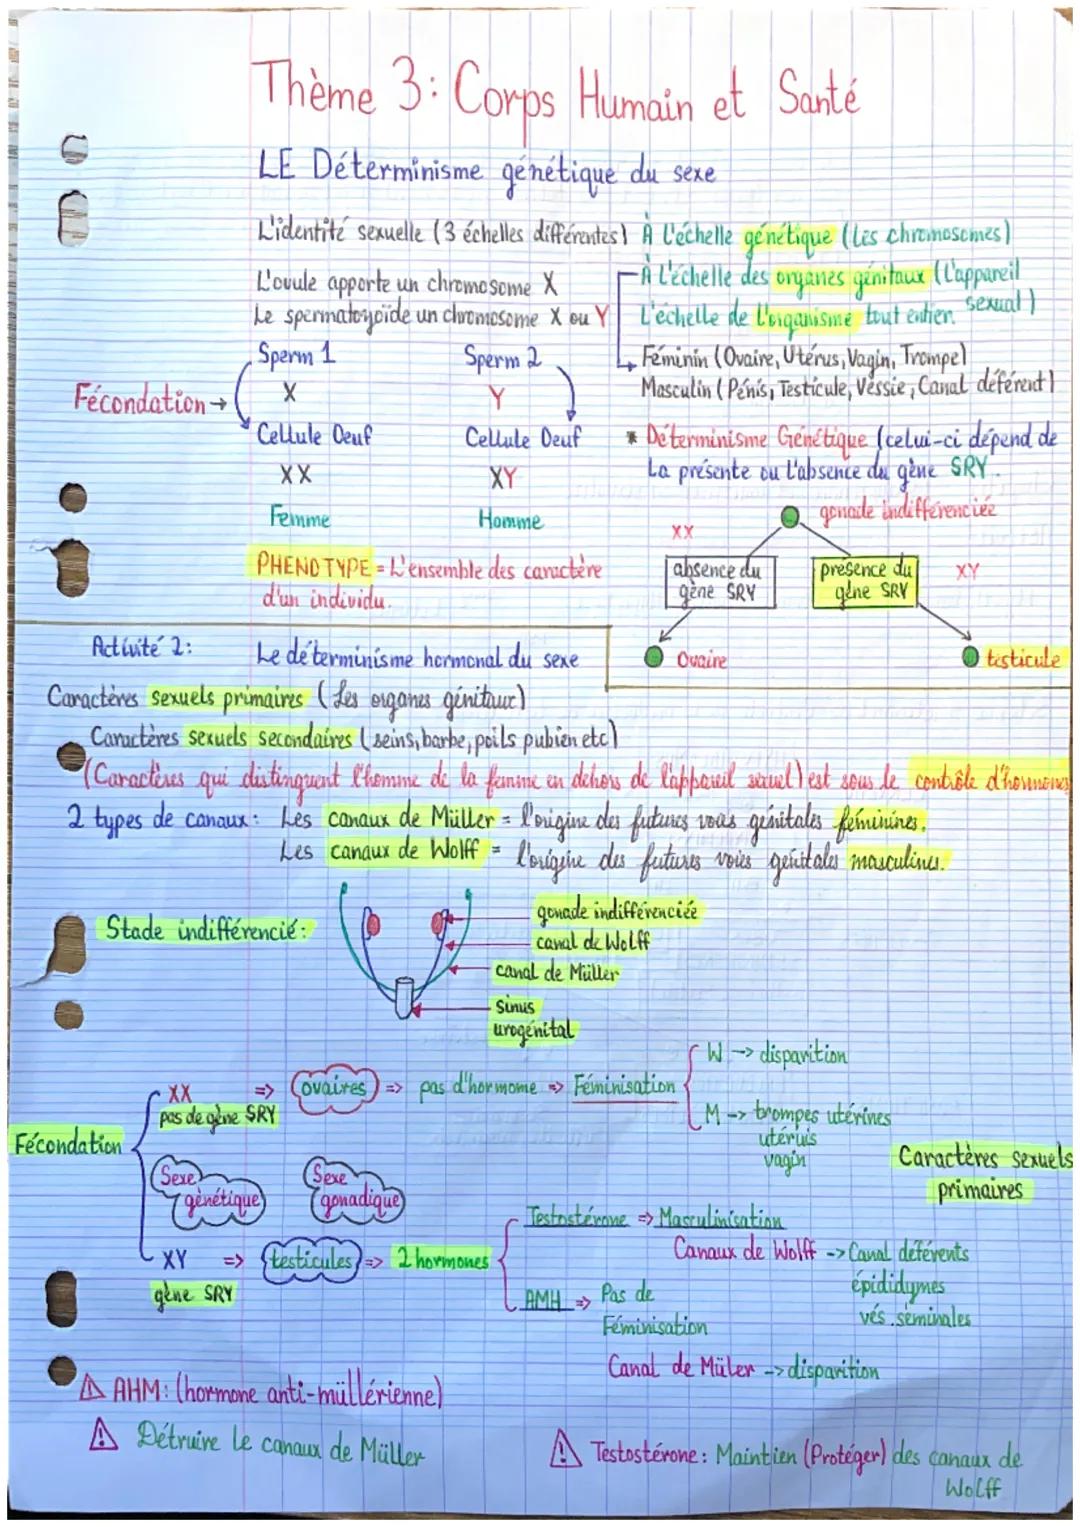 Thème 3: Corps Humain et Santé
LE Déterminisme génétique du sexe
L'identité sexuelle (3 échelles différentes)
À l'échelle génétique (les chromosomes)
À l'échelle des organes génitaux (l'appareil sexual)
L'échelle de l'organisme tout entier.
L'ovule apporte un chromosome X
Le spermatozoïde un chromosome X ou Y
Féminin (Ovaire, Utérus, Vagin, Trompe)
Masculin (Pénis, Testicule, Vessie, Canal déférent)
Sperm 1
Sperm 2
X
Y
Fécondation →
Cellule Oeuf
Cellule Oeuf
XX
XY
Femme
Homme
* Déterminisme Génétique (celui-ci dépend de
La présente ou l'absence du gène SRY.
gonade indifférenciée
XX
absence du
gène SRY
présence du
gène SRY
XY
Ovaire
testicule
PHENOTYPE = L'ensemble des caractère
d'un individu.
Activité 2:
Le déterminisme hormonal du sexe
Caractères sexuels primaires (Les organes génitaux)
Caractères sexuels secondaires (seins, barbe, poils pubien etc)
(Caractères qui distinguent l'homme de la femme en dehors de l'appareil sexuel) est sous le contrôle d'hormones
2 types de canaux: Les canaux de Müller = l'origine des futures voies génitales féminines.
Les canaux de Wolff = l'origine des futures voies génitales masculines.
Stade indifférencié:
gonade indifférenciée
canal de Wolff
canal de Müller
Sinus
urogénital
Fécondation
XX => ovaires => pas d'hormome => Féminisation
pas de gène SRY
W -> disparition
M -> trompes utérines
utéruis
vagin
Caractères sexuels
primaires
Sexe
génétique
Sexe
gonadique
XY => testicules => 2 hormones
gène SRY
Testostérone => Masculinisation
Canaux de Wolff -> Canal déférents
épididymes
vés. séminales
AMH => Pas de
Féminisation
Canal de Müler -> disparition
⚠ AHM: (hormone anti-müllérienne)
⚠ Détruire le canaux de Müller
⚠ Testostérone: Maintien (Protéger) des canaux de
Wolff